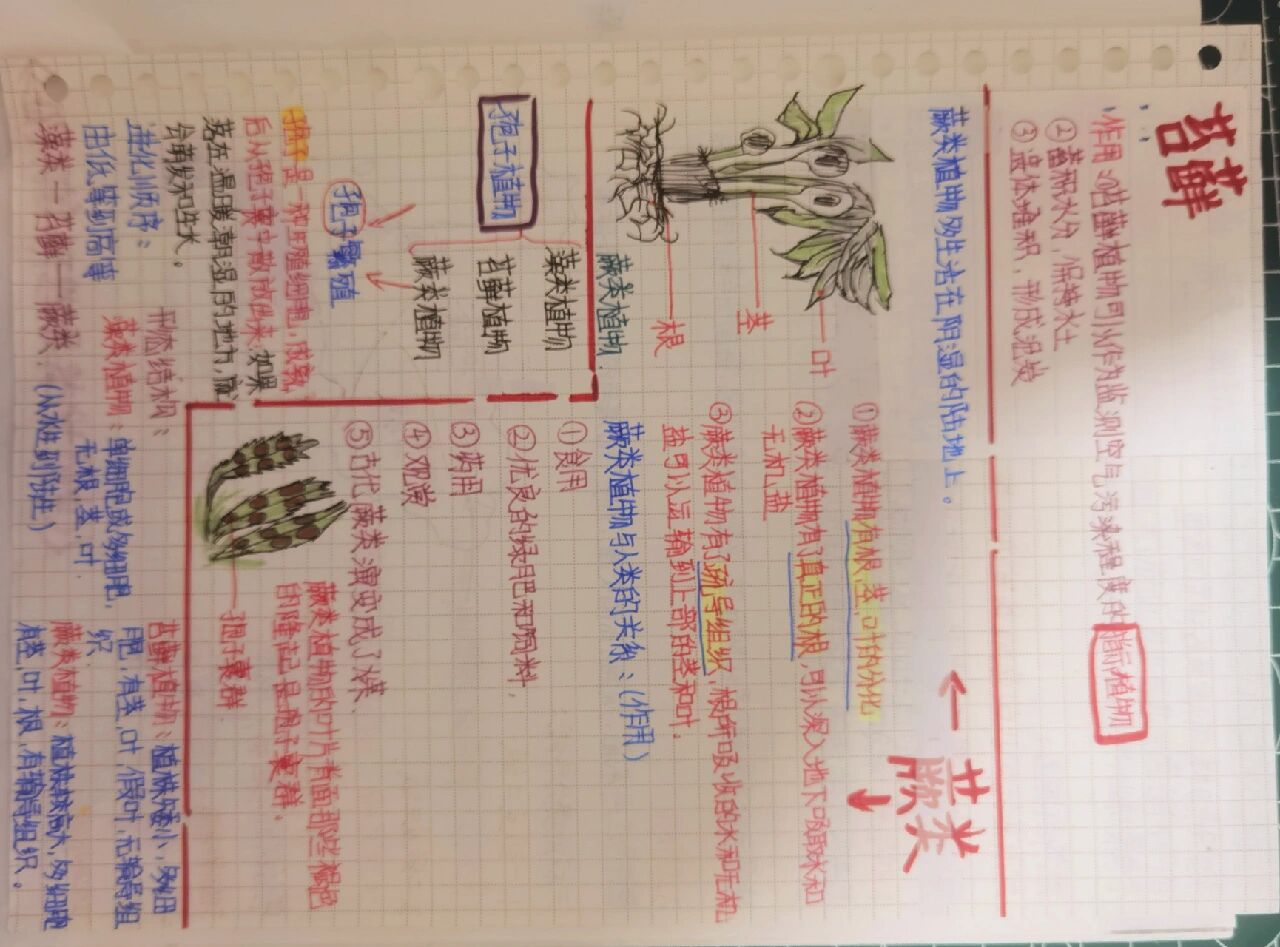 苔藓
作用:①苔藓植物可以作为监测空气污染程度的指示植物
②蓄积水分,保持水土
③尸体堆积,形成泥炭
蕨类
蕨类植物多生活在阴湿的陆地上。
叶
茎
根
蕨类植物
①蕨类植物有根,茎,叶的分化
②蕨类植物有了真正的根,可以深入地下吸取水和
无机盐
③蕨类植物有了疏导组织,根所吸收的水和无机
盐可以运输到上部的茎和叶.
蕨类植物与人类的关系:(作用)
①食用
②优良的绿肥和饲料.
③药用
④观赏
⑤古代蕨类演变成了煤.
蕨类植物的叶片背面那些褐色
的隆起是孢子囊群.
孢子囊群
孢子植物
藻类植物
苔藓植物
蕨类植物
孢子繁殖
孢子是一种生殖细胞,成熟
后从孢子囊中散放出来.如果
落在温暖潮湿的地方,就
会萌发和生长。
进化顺序:
由低等到高等
藻类—苔藓—蕨类.(从水生到陆生)
形态结构:
藻类植物:单细胞或多细胞,
无根,茎,叶.
苔藓植物:植株矮小,多细
胞,有茎,叶,假叶,无输导组
织.
蕨类植物:植株高大,多细胞
有茎,叶,根,有输导组织。